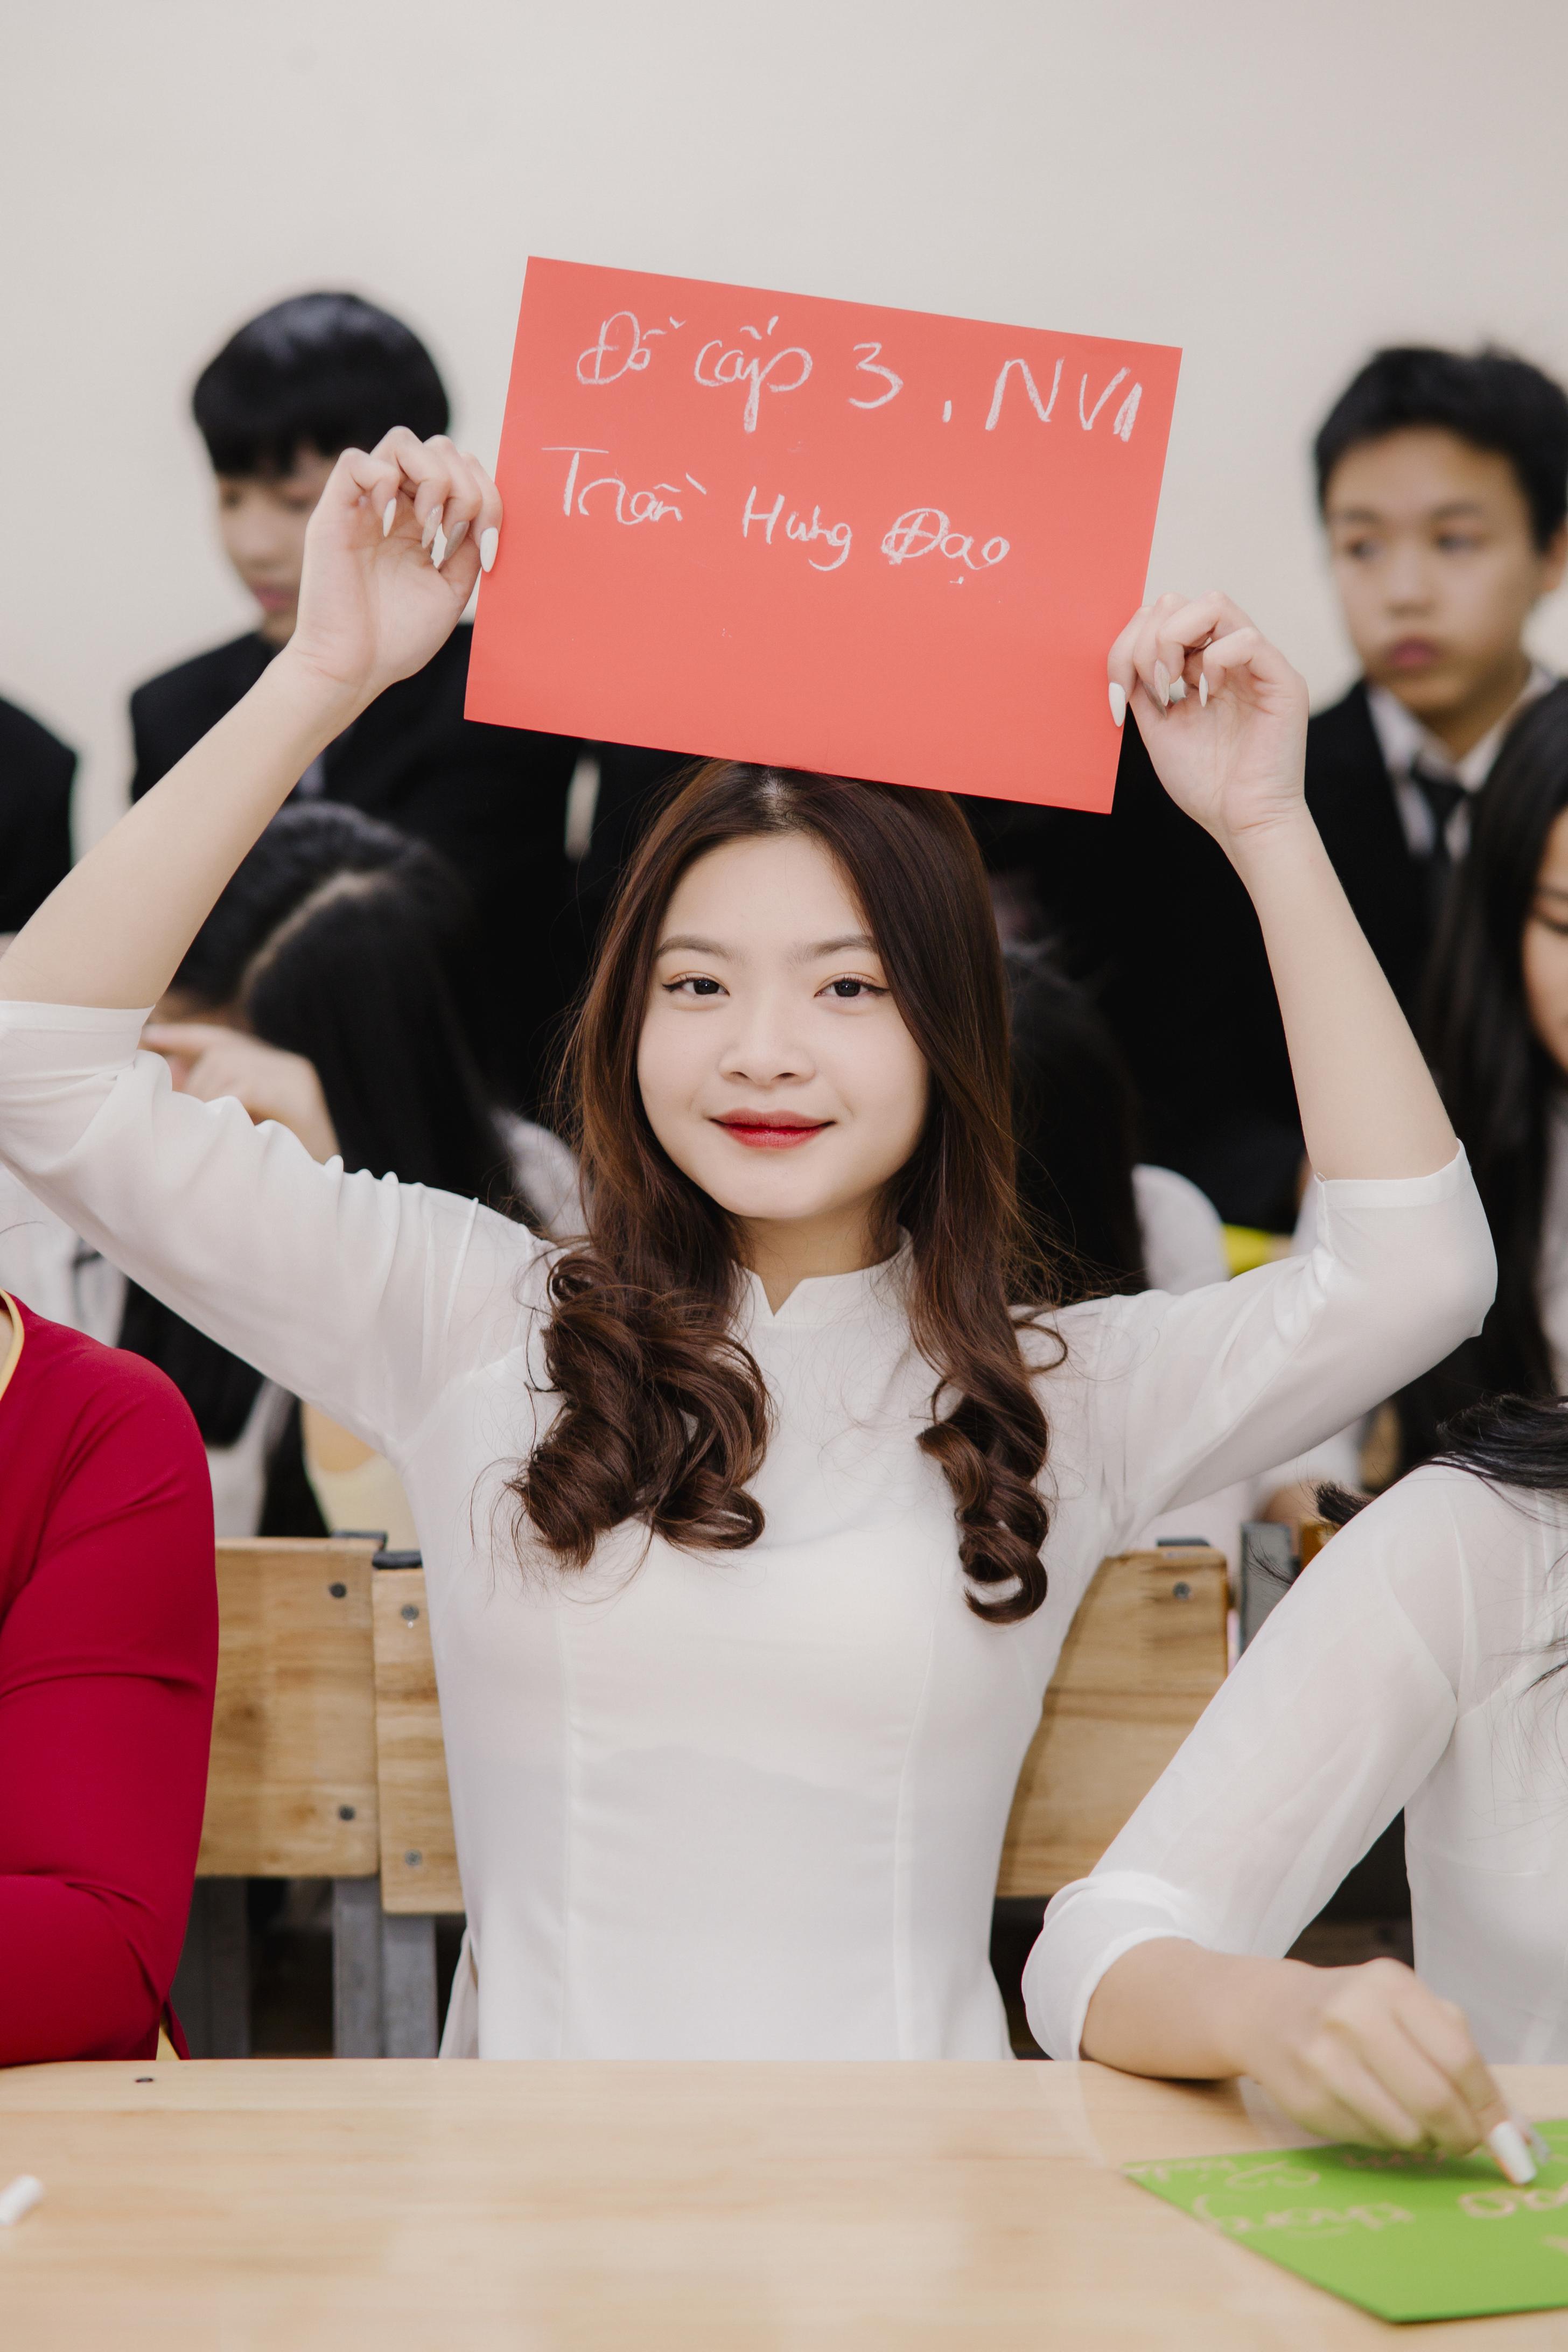 Đỗ cấp 3, NV1
Trần Hưng Đạo